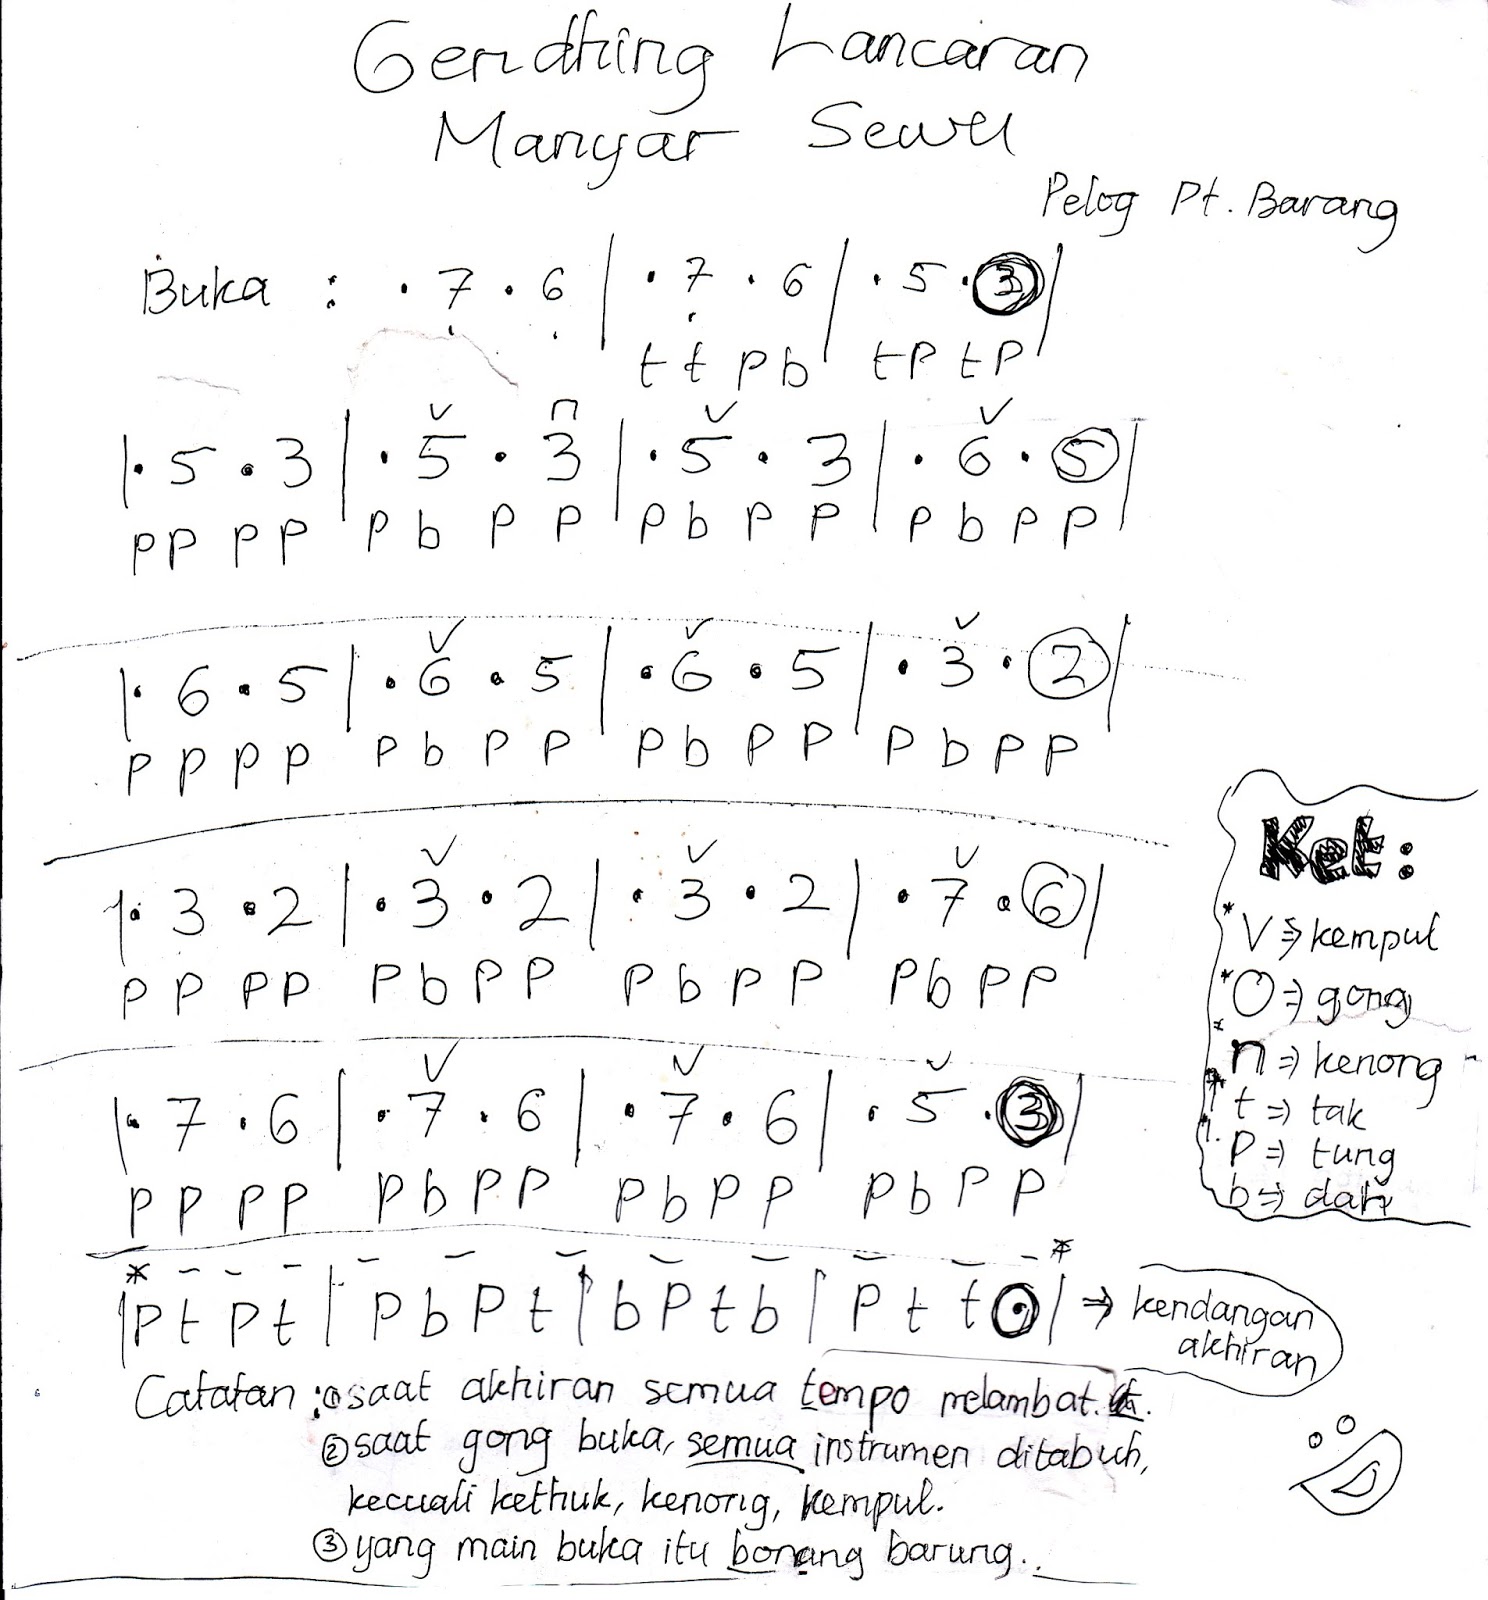 Gendhing Lancaran
Manyar Sewu
Pelog Pt. Barang
Buka : . 7̣ . 6̣ | . 7̣ . 6 | . 5 . ③ |
t t p b | t p t p |
v n v v
| . 5 . 3 | . 5 . 3 | . 5 . 3 | . 6 . ⑤ |
p p p p | p b p p | p b p p | p b p p |
v v v
| . 6 . 5 | . 6 . 5 | . 6 . 5 | . 3 . ② |
p p p p p b p p p b p p p b p p
v v v
| . 3 . 2 | . 3 . 2 | . 3 . 2 | . 7 . ⑥ |
p p p p p b p p p b p p p b p p
v v v
| . 7 . 6 | . 7 . 6 | . 7 . 6 | . 5 . ③ |
p p p p p b p p p b p p p b p p
* - - - - - - - - - - - - *
| p t p t | p b p t | b p t b | p t t ⊙ | ⇒ kendangan
akhiran
Catatan : ① saat akhiran semua tempo melambat.
② saat gong buka, semua instrumen ditabuh,
kecuali kethuk, kenong, kempul.
③ yang main buka itu bonang barung..
Ket :
* V ⇒ kempul
* O ⇒ gong
* n ⇒ kenong
* t ⇒ tak
p ⇒ tung
b ⇒ dah